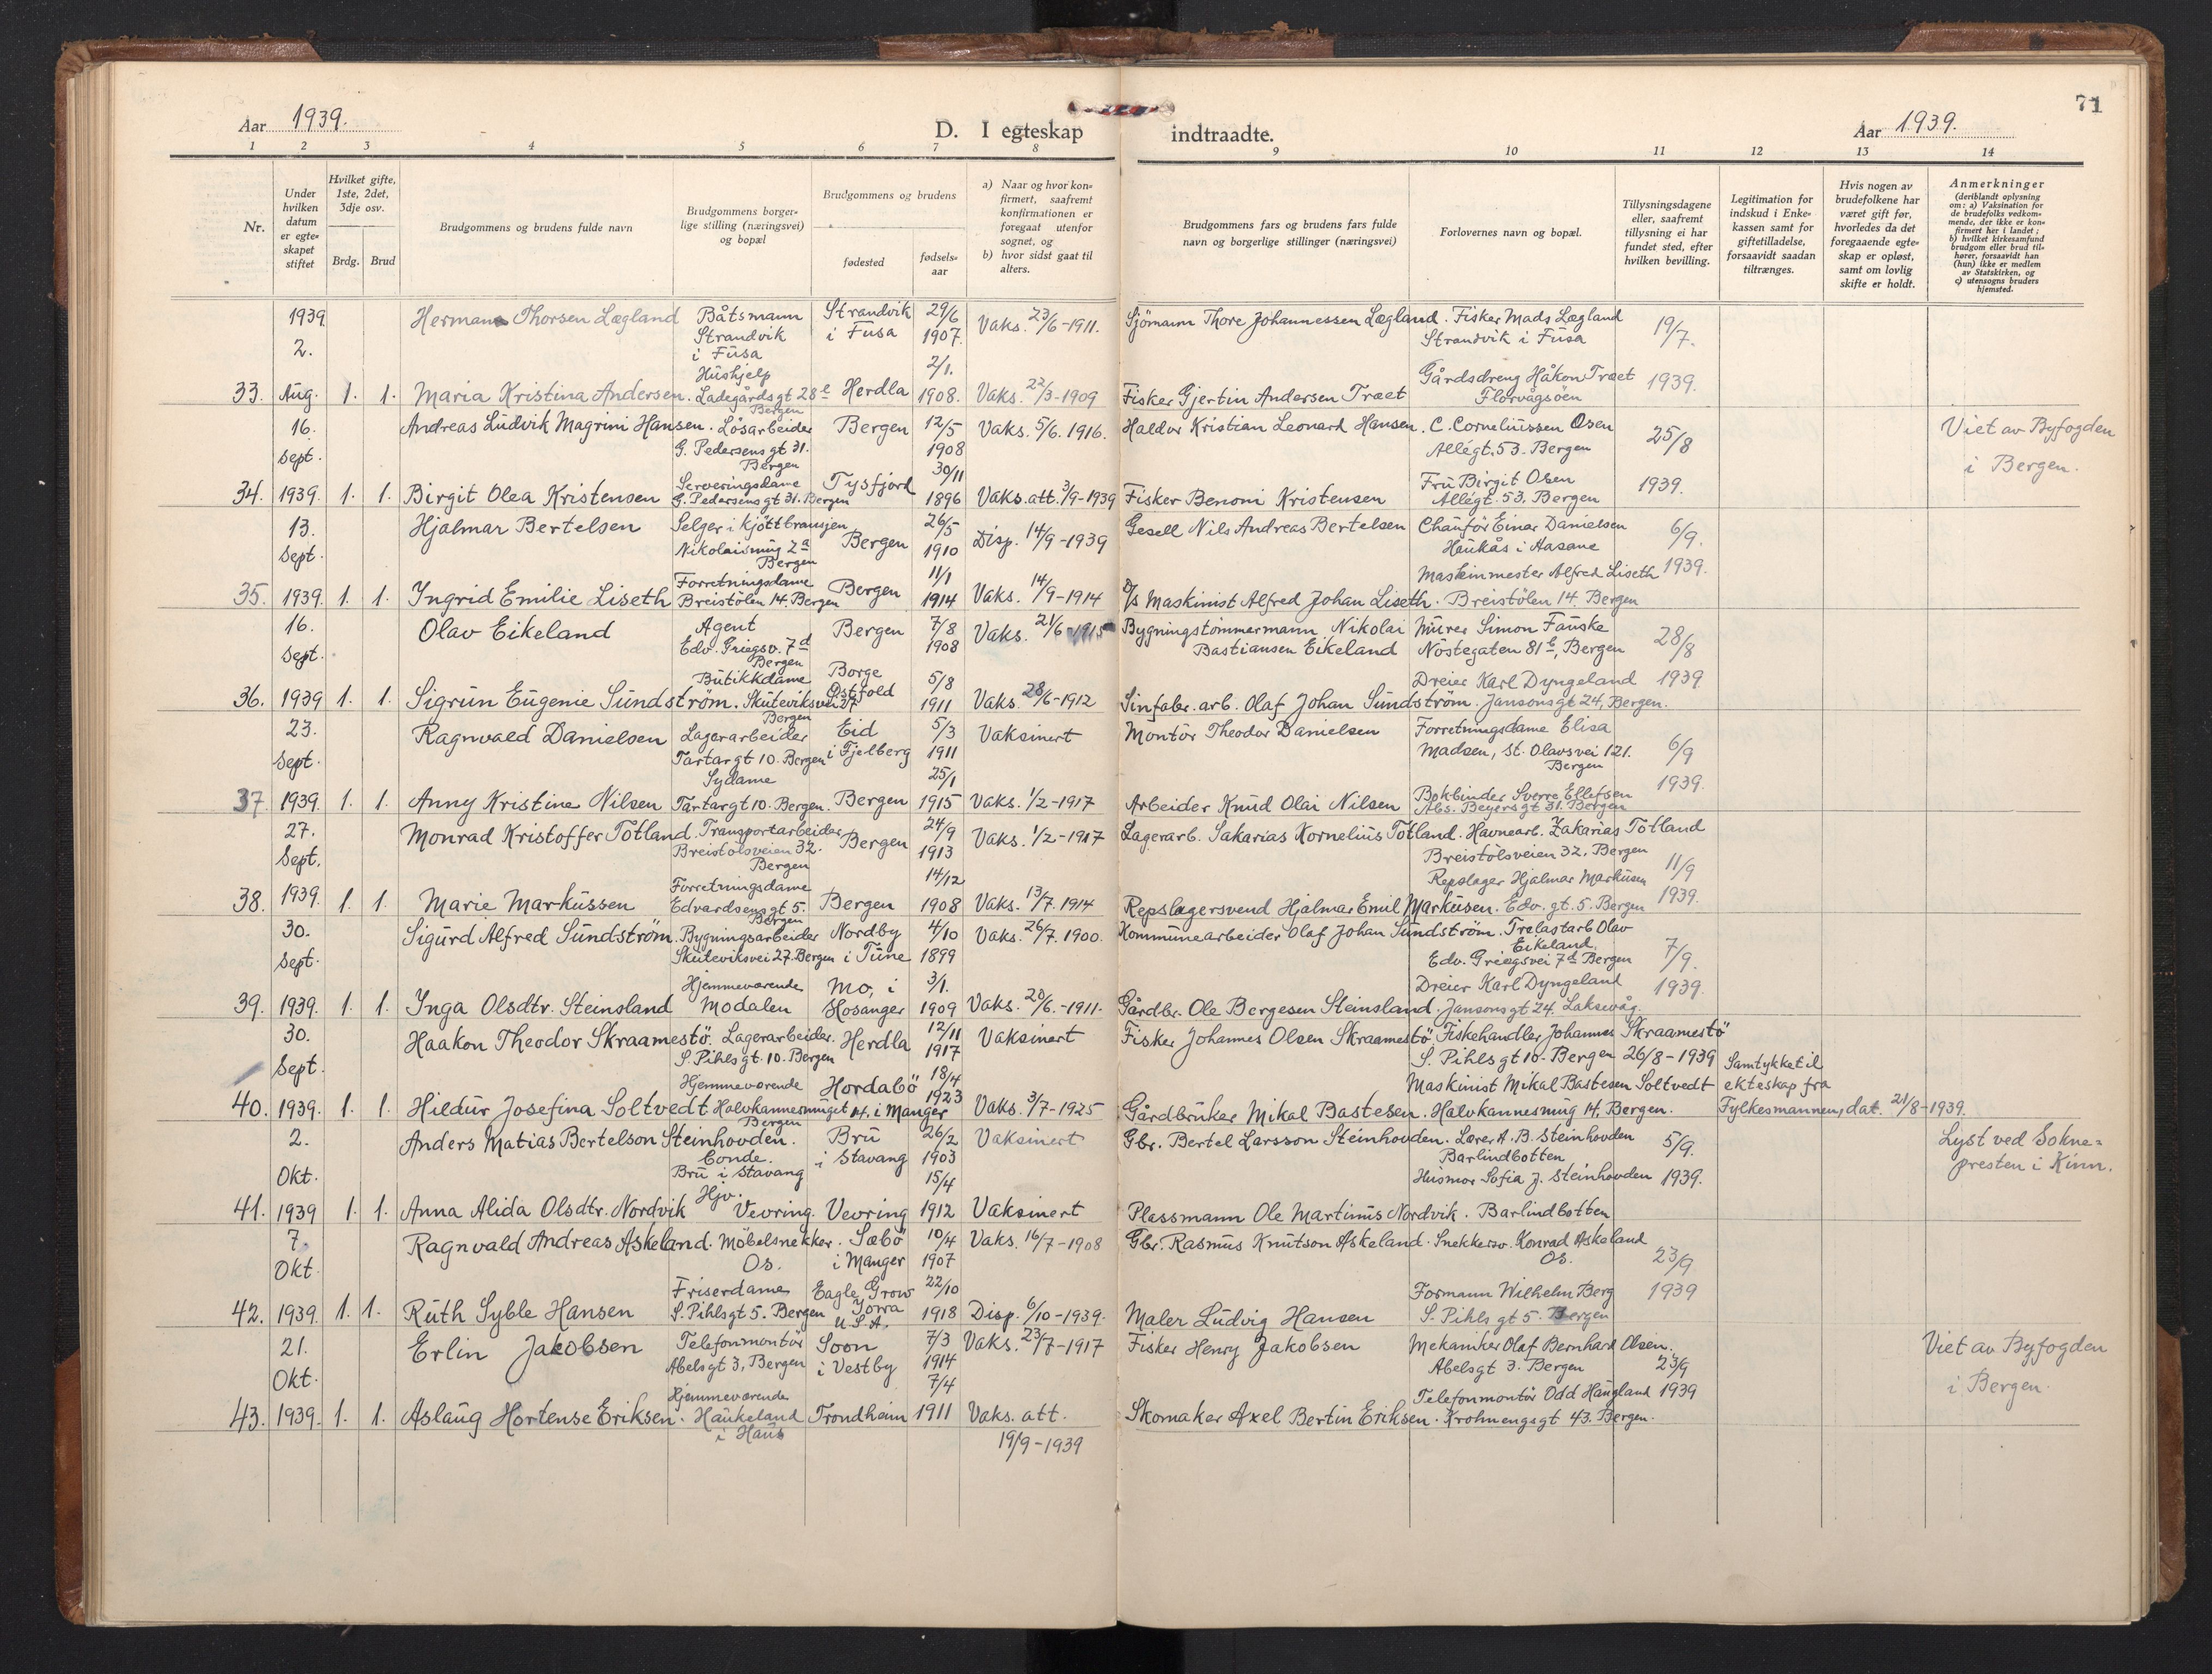 71
Aar 1939.
D. I egteskap indtraadte.
Aar 1939.
1 2 3 4 5 6 7 8 9 10 11 12 13 14
Nr.
Under hvilken datum er egteskapet stiftet
Hvilket gifte, 1ste, 2det, 3dje osv.
Brdg. Brud
Brudgommens og brudens fulde navn
Brudgommens borgerlige stilling (næringsvei) og bopæl
Brudgommens og brudens
fødested
fødselsaar
a) Naar og hvor konfirmert, saafremt konfirmationen er foregaat utenfor sognet, og
b) hvor sidst gaat til alters.
Brudgommens fars og brudens fars fulde navn og borgerlige stillinger (næringsvei)
Forlovernes navn og bopæl.
Tillysningsdagene eller, saafremt tillysning ei har fundet sted, efter hvilken bevilling.
Legitimation for indskud i Enkekassen samt for giftetilladelse, forsaavidt saadan tiltrænges.
Hvis nogen av brudefolkene har været gift før, hvorledes da det foregaaende egteskap er opløst, samt om lovlig skifte er holdt.
Anmerkninger
(deriblandt oplysning om: a) Vaksination for de brudefolks vedkommende, der ikke er konfirmert her i landet; b) hvilket kirkesamfund brudgom eller brud tilhører, forsaavidt han (hun) ikke er medlem av Statskirken, og c) utensogns bruders hjemsted.
33. 1939 2. Aug. 1. 1.
Herman Thorsen Lægland Båtsmann Strandvik i Fusa Strandvik i Fusa 29/6 1907. Vaks. 23/6-1911. Sjömann Thore Johannessen Lægland. Fisker Mads Lægland Strandvik i Fusa 19/7.
Maria Kristina Andersen. Hushjelp Ladegårdsgt 28e Bergen Herdla 2/1. 1908. Vaks. 22/3-1909 Fisker Gjertin Andersen Træt Gårdsdreng Håkon Træt Florvågsöen 1939.
34. 16. Sept. 1939. 1. 1.
Andreas Ludvik Magrini Hansen. Lösarbeider G. Pedersens gt 31. Bergen Bergen 12/5 1908 Vaks. 5/6. 1916. Haldor Kristian Leonard Hansen. C. Corneliussen Osen Allégt. 53. Bergen 25/8 Viet av Byfogden i Bergen.
Birgit Olea Kristensen Serveringsdame G. Pedersens gt 31. Bergen Tysfjord 30/11 1896 Vaks. att. 3/9-1939 Fisker Benoni Kristensen Fru Birgit Osen Allégt. 53. Bergen 1939.
35. 13. Sept. 1939. 1. 1.
Hjalmar Bertelsen Selger i kjöttbransjen Nikolaismug 2a Bergen Bergen 26/5 1910 Disp. 14/9-1939 Gesell Nils Andreas Bertelsen Chauför Einar Danielsen Haukås i Aasane 6/9.
Ingrid Emilie Liseth Forretningsdame Breistölen 14. Bergen Bergen 11/1 1914 Vaks. 14/9-1914 D/s Maskinist Alfred Johan Liseth. Maskinmester Alfred Liseth Breistölen 14. Bergen 1939.
36. 16. Sept. 1939 1. 1.
Olav Eikeland Agent Edv. Griegsv. 7d Bergen Bergen 7/8 1908 Vaks. 21/6-1915 Bygningstömmermann Nikolai Bastiansen Eikeland Murer Simon Fauske Nöstegaten 81b, Bergen 28/8
Sigrun Eugenie Sundström. Butikkdame Skuteviksvei 27 Bergen Borge Östfold 5/8 1911 Vaks. 28/6-1912 Sinfabr. arb. Olaf Johan Sundström. Dreier Karl Dyngeland Jansonsgt 24, Bergen. 1939
37. 23. Sept. 1939. 1. 1.
Ragnvald Danielsen Lagerarbeider Tartargt 10. Bergen Eid i Fjelberg 5/3 1911 Vaksinert Montör Theodor Danielsen Forretningsdame Elisa Madsen, St. Olavsvei 121. Bergen 6/9
Anny Kristine Nilsen Sydame Tartargt 10. Bergen. Bergen 25/1 1915 Vaks. 1/2-1917 Arbeider Knud Olai Nilsen Bokbinder Sverre Ellefsen Abs. Beyers gt 31. Bergen 1939.
38. 27. Sept. 1939. 1. 1.
Monrad Kristoffer Totland. Transportarbeider Breistölsveien 32. Bergen Bergen 24/9 1913 Vaks. 1/2-1917 Lagerarb. Sakarias Kornelius Totland. Havnearb. Zakarias Totland Breistölsveien 32. Bergen 11/9
Marie Markussen Forretningsdame Edvardsens gt 5. Bergen Bergen 14/12 1908 Vaks. 13/7. 1914 Repslagersvend Hjalmar Emil Markusen. Repslager Hjalmar Markusen Edv. gt. 5. Bergen 1939.
39. 30. Sept. 1939. 1. 1.
Sigurd Alfred Sundström. Bygningsarbeider Skuteviksvei 27. Bergen Nordby i Tune 4/10 1899 Vaks. 26/7. 1900. Kommunearbeider Olaf Johan Sundström. Trelastarb Olav Eikeland. Edv. Griegsvei 7d Bergen 7/9.
Inga Olsdtr. Steinsland Hjemmeværende Modalen Mo, i Hosanger 3/1. 1909 Vaks. 20/6.-1911. Gårdbr. Ole Bergesen Steinsland. Dreier Karl Dyngeland Jansonsgt 24. Laksevåg. 1939.
40. 30. Sept. 1939. 1. 1.
Haakon Theodor Skraamestö. Lagerarbeider. S. Pihls gt. 10. Bergen Herdla 12/11 1917 Vaksinert Fisker Johannes Olsen Skraamestö Fiskehandler Johannes Skraamestö S. Pihls gt 10. Bergen 26/8-1939 Samtykke til ekteskap fra Fylkesmannen, dat. 21/8-1939.
Hildur Josefina Soltvedt Hjemmeværende Halvkannesmuget 14. Bergen Hordabö i Manger 18/4 1923 Vaks. 3/7-1925 Gårdbruker Mikal Bastesen. Maskinist Mikal Bastesen Soltvedt Halvkannesmug 14. Bergen.
41. 2. Okt. 1939 1. 1.
Anders Matias Bertelson Steinhovden. Bonde. Bru i Stavang Bru i Stavang 26/2 1903 Vaksinert Gbr. Bertel Larsson Steinhovden. Lærer A. B. Steinhovden Barlindbotten 5/9. Lyst ved Sokne=presten i Kinn.
Anna Alida Olsdtr. Nordvik Hjv. Vevring. Vevring 15/4 1912 Vaksinert Plassmann Ole Martinus Nordvik. Husmor Sofia J. Steinhovden Barlindbotten 1939.
42. 7. Okt. 1939. 1. 1.
Ragnvald Andreas Askeland. Möbelsnekker. Os. Sæbö i Manger 10/4 1907 Vaks. 16/7-1908 Gbr. Rasmus Knutson Askeland. Snekkersv. Konrad Askeland Os. 23/9
Ruth Syble Hansen Friserdame S. Pihlsgt 5. Bergen Eagle Grow Iowa U.S.A. 22/10 1918 Disp. 6/10-1939. Maler Ludvig Hansen Formann Wilhelm Berg S. Pihls gt 5. Bergen 1939
43. 21. Okt. 1939. 1. 1.
Erlin Jakobsen Telefonmontör Abelsgt 3, Bergen Soon i Vestby 7/3 1914 Vaks. 23/7-1917 Fisker Henry Jakobsen Mekaniker Olaf Bernhard Olsen. Abelsgt 3. Bergen 23/9 Viet av Byfogden i Bergen.
Aslaug Hortense Eriksen. Hjemmeværende Haukeland i Haus Trondheim 7/4 1911 Vaks. att. 19/9-1939 Skomaker Axel Bertin Eriksen. Telefonmontör Odd Haugland Krohnengsgt 43. Bergen. 1939